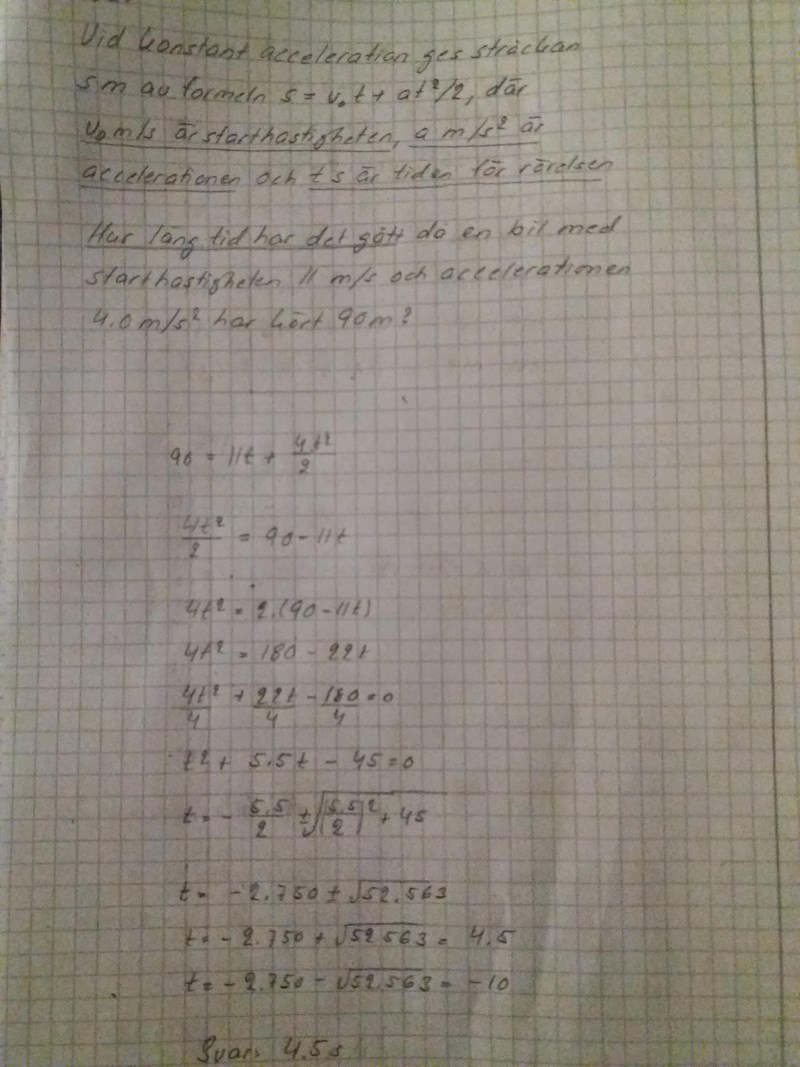 Vid konstant acceleration ges sträckan
s m av formeln s = v₀t + at²/2, där
v₀ m/s är starthastigheten, a m/s² är
accelerationen och t s är tiden för rörelsen
Hur lång tid har det gått då en bil med
starthastigheten 11 m/s och accelerationen
4.0 m/s² har kört 90 m?
90 = 11t + 4t²/2
4t²/2 = 90 - 11t
4t² = 2·(90 - 11t)
4t² = 180 - 22t
4t²/4 + 22t/4 - 180/4 = 0
t² + 5.5t - 45 = 0
t = - 5.5/2 ± √((5.5/2)² + 45)
t = -2.750 ± √52.563
t = -2.750 + √52.563 = 4.5
t = -2.750 - √52.563 = -10
Svar: 4.5 s